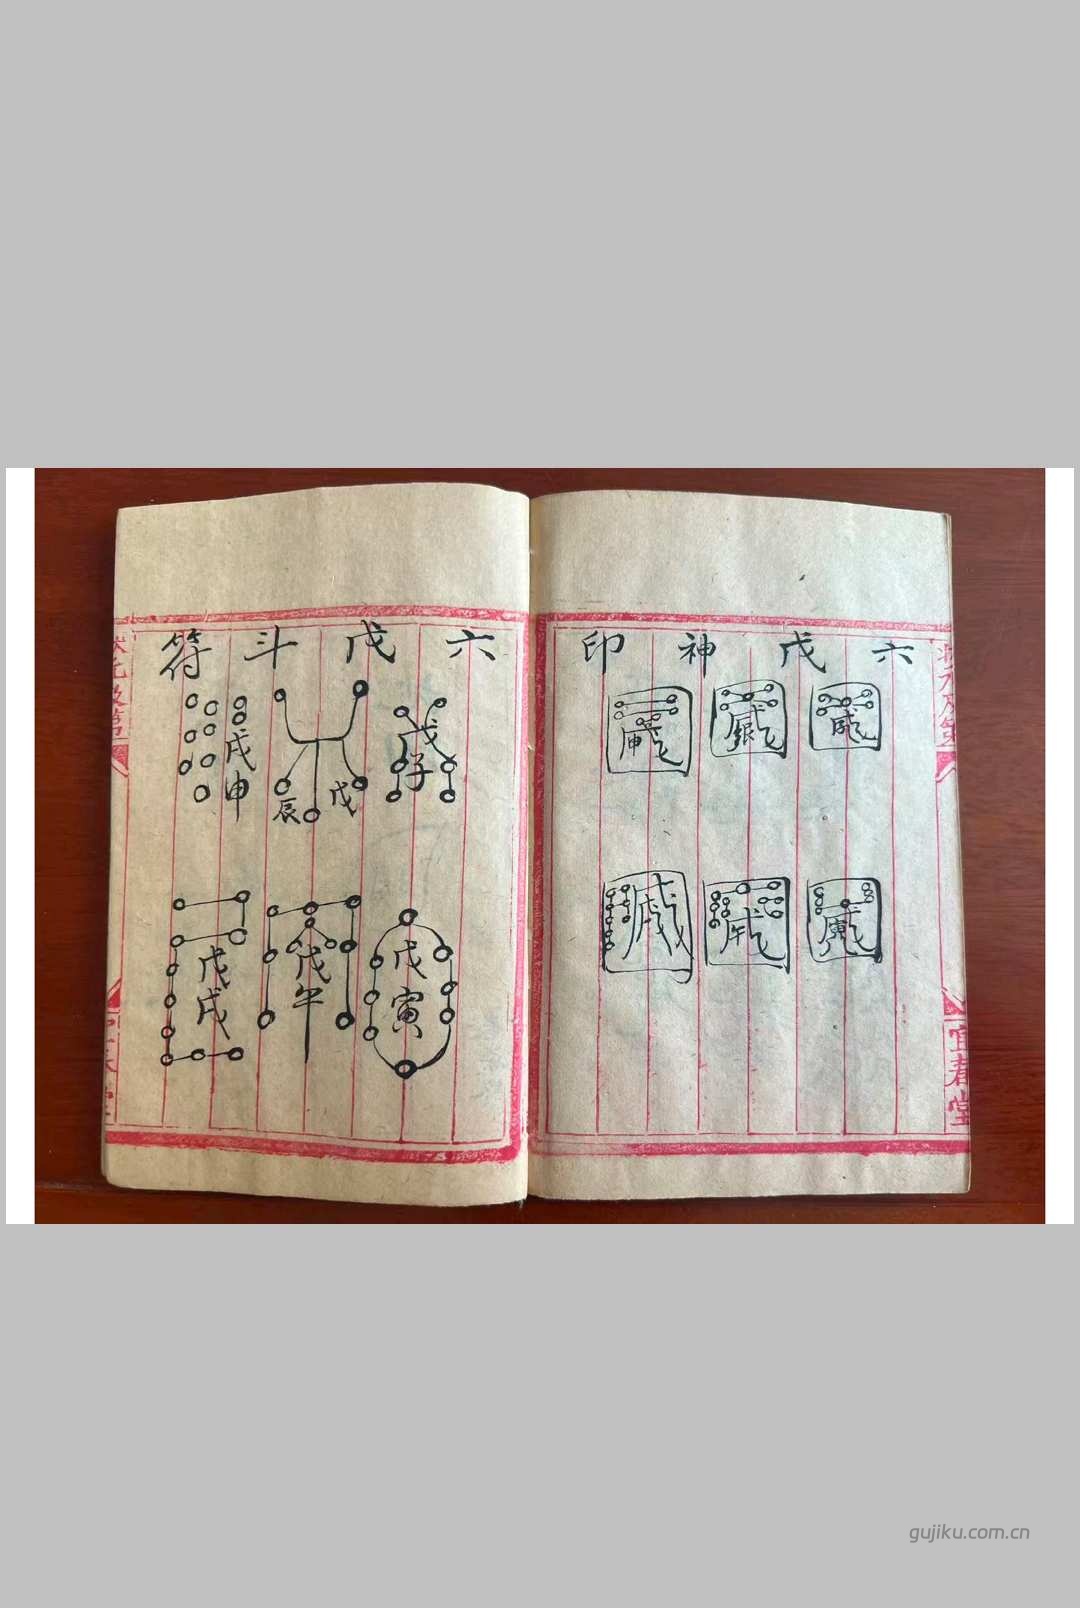 六戊神印
申
午
寅
六戊斗符
戊子
戊
辰
戊申
戊寅
戊午
戊戌
宜春堂
gujiku.com.cn